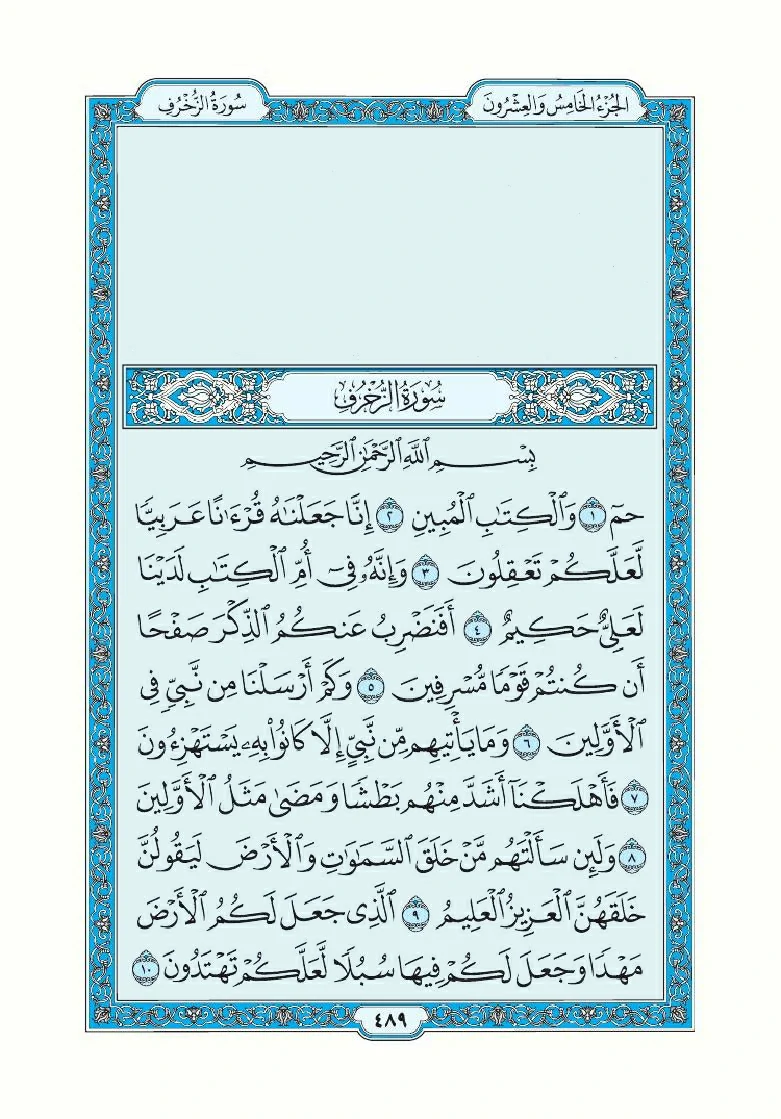 الجُزْءُ الخَامِسُ وَالعِشْرُونَ
سُورَةُ الزُّخْرُفِ
سُورَةُ الزُّخْرُفِ
بِسْمِ ٱللَّهِ ٱلرَّحْمَٰنِ ٱلرَّحِيمِ
حمٓ ١ وَٱلْكِتَٰبِ ٱلْمُبِينِ ٢ إِنَّا جَعَلْنَٰهُ قُرْءَٰنًا عَرَبِيًّا
لَّعَلَّكُمْ تَعْقِلُونَ ٣ وَإِنَّهُۥ فِىٓ أُمِّ ٱلْكِتَٰبِ لَدَيْنَا
لَعَلِىٌّ حَكِيمٌ ٤ أَفَنَضْرِبُ عَنكُمُ ٱلذِّكْرَ صَفْحًا
أَن كُنتُمْ قَوْمًا مُّسْرِفِينَ ٥ وَكَمْ أَرْسَلْنَا مِن نَّبِىٍّ فِى
ٱلْأَوَّلِينَ ٦ وَمَا يَأْتِيهِم مِّن نَّبِىٍّ إِلَّا كَانُوا۟ بِهِۦ يَسْتَهْزِءُونَ
٧ فَأَهْلَكْنَآ أَشَدَّ مِنْهُم بَطْشًا وَمَضَىٰ مَثَلُ ٱلْأَوَّلِينَ
٨ وَلَئِن سَأَلْتَهُم مَّنْ خَلَقَ ٱلسَّمَٰوَٰتِ وَٱلْأَرْضَ لَيَقُولُنَّ
خَلَقَهُنَّ ٱلْعَزِيزُ ٱلْعَلِيمُ ٩ ٱلَّذِى جَعَلَ لَكُمُ ٱلْأَرْضَ
مَهْدًا وَجَعَلَ لَكُمْ فِيهَا سُبُلًا لَّعَلَّكُمْ تَهْتَدُونَ ١٠
٤٨٩